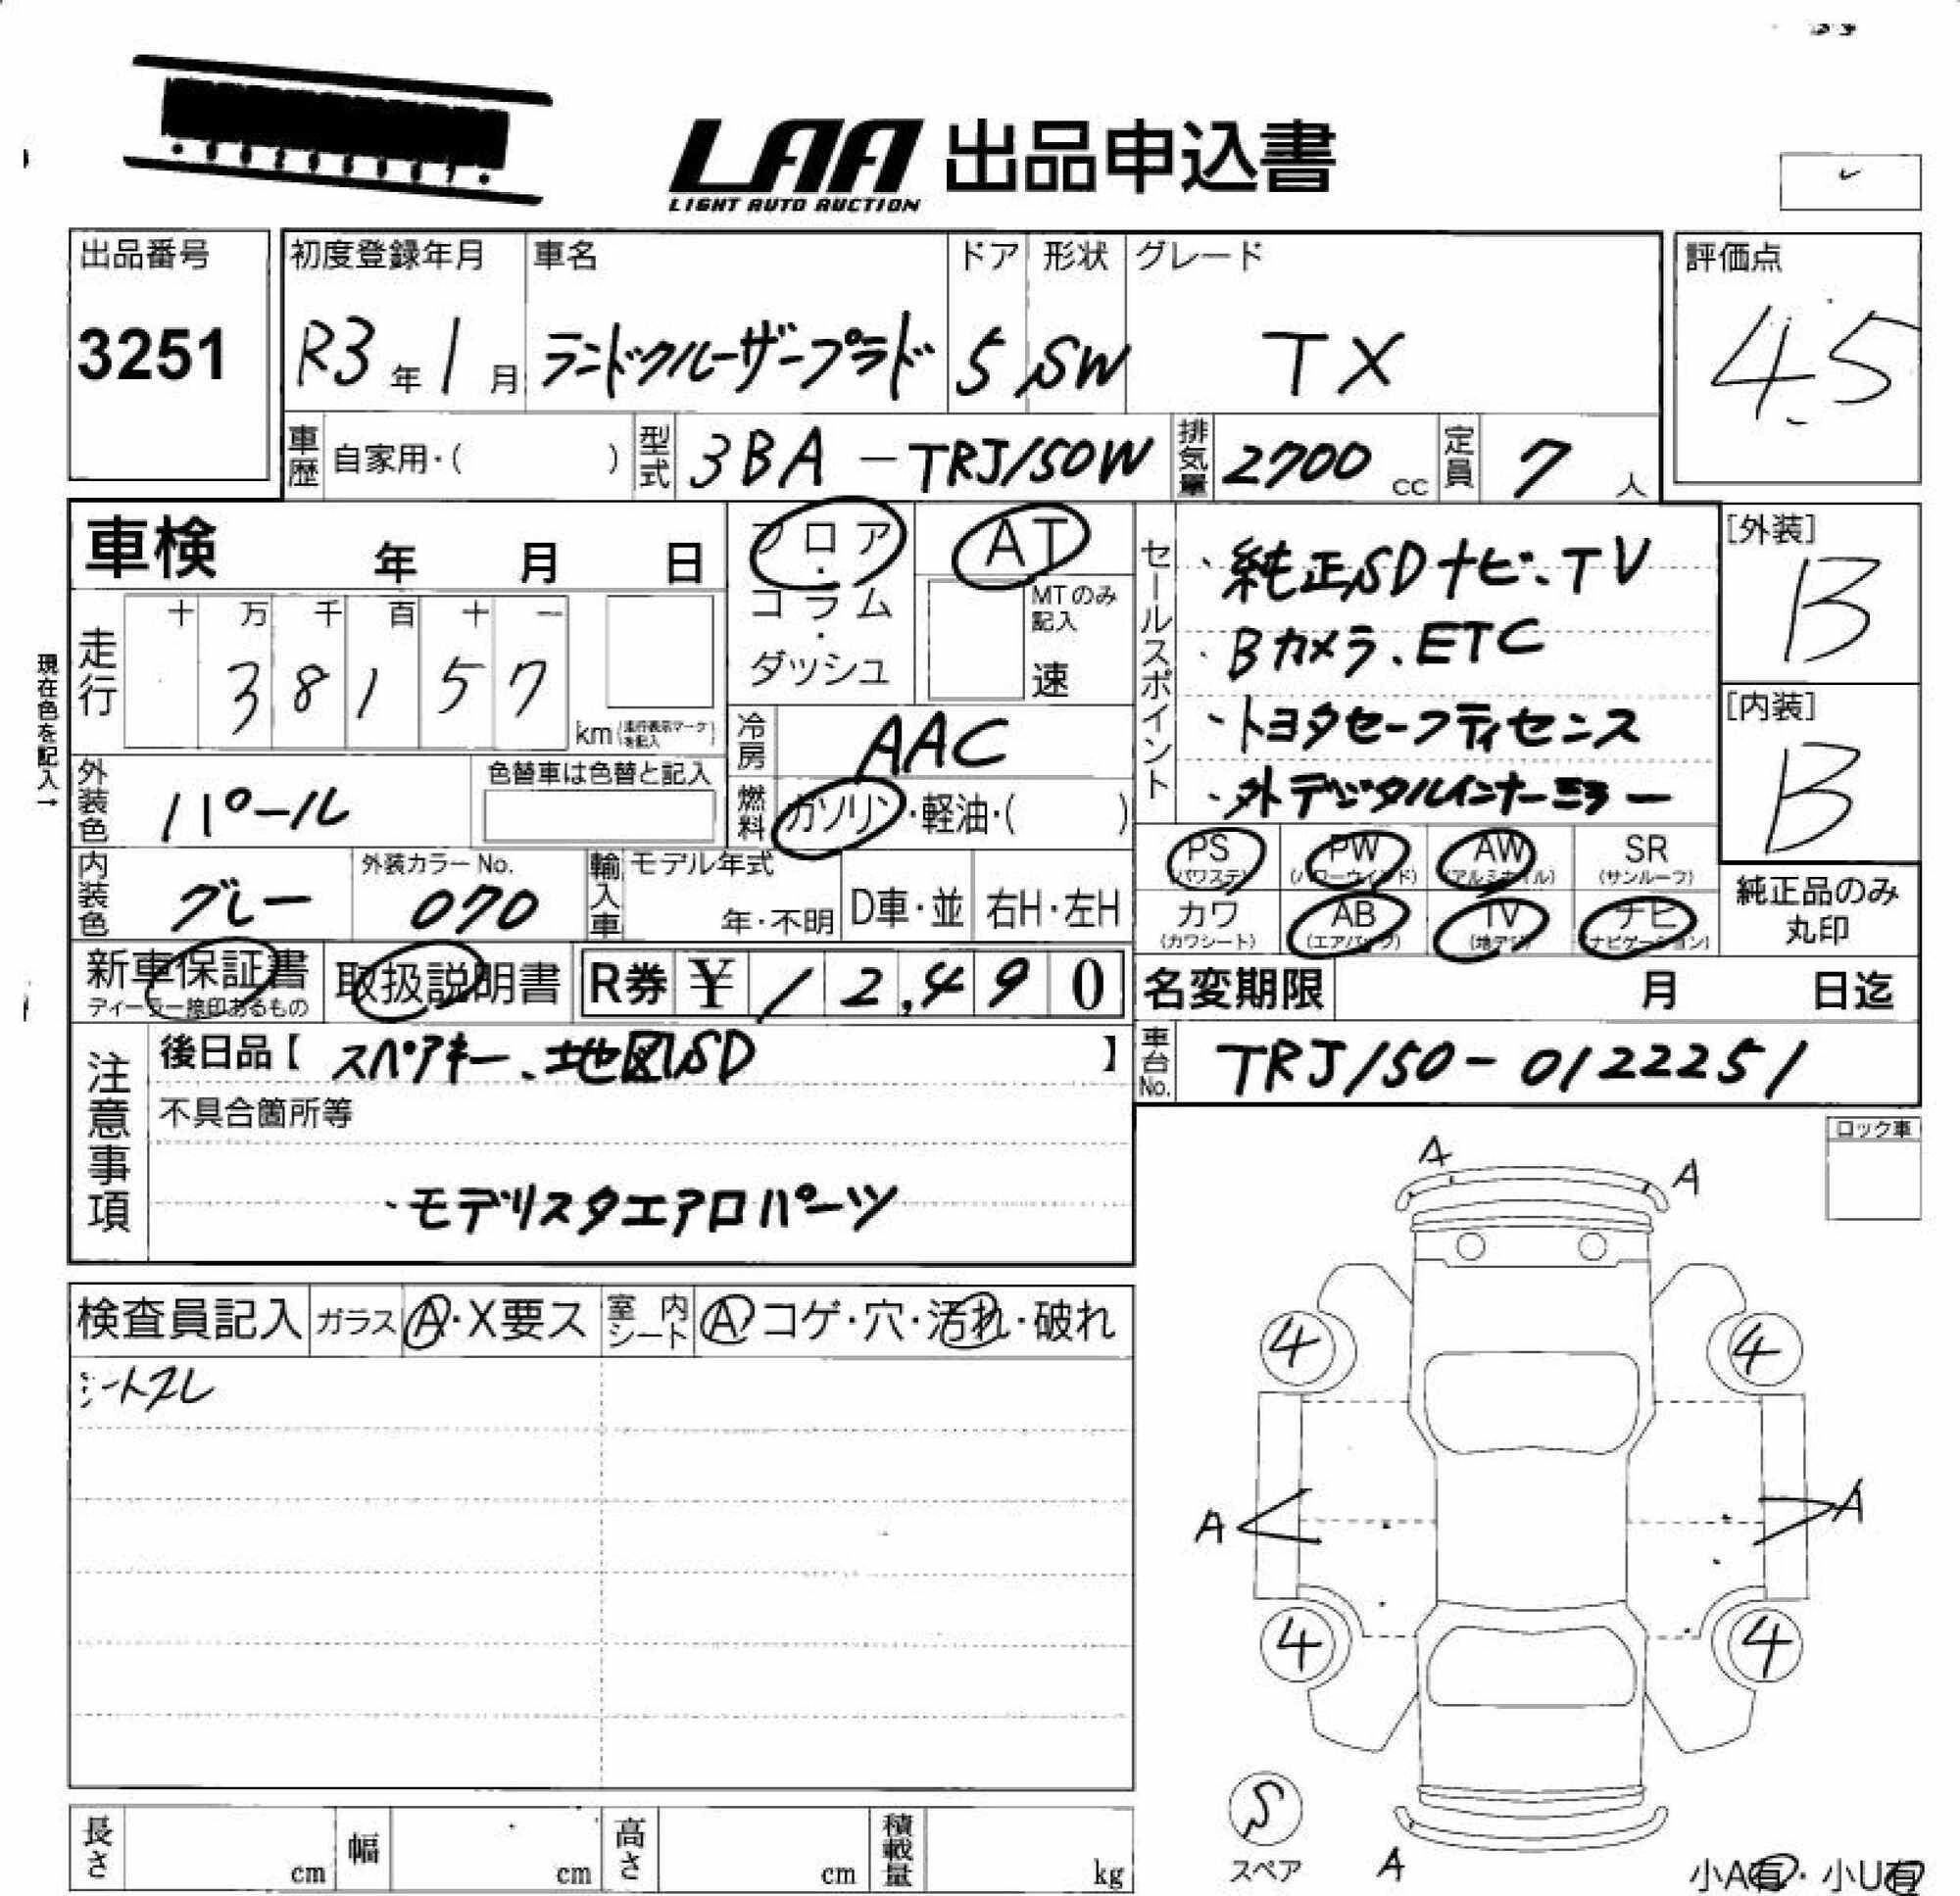 LAA 出品申込書
LIGHT AUTO AUCTION
出品番号 初度登録年月 車名 ドア 形状 グレード 評価点
3251 R3年1月 ランドクルーザープラド 5 SW TX 4.5
車歴 自家用・( ) 型式 3BA-TRJ150W 排気量 2700cc 定員 7人
車検 年 月 日 フロア・コラム・ダッシュ AT
MTのみ記入 速
現在色を記入→
走行 十 万 千 百 十 一
38157 km
冷房 AAC
外装色 パール 色替車は色替と記入 燃料 ガソリン・軽油・( )
内装色 グレー 外装カラーNo. 070 輸入車 モデル年式 年・不明 D車・並 右H・左H
新車保証書 取扱説明書 R券 ¥12,490
ディーラー捺印あるもの
セールスポイント
・純正SDナビ、TV
・Bカメラ、ETC
・トヨタセーフティセンス
・外デジタルインナーミラー
[外装] B
[内装] B
PS PW AW SR
(パワステ) (パワーウインド) (アルミホイル) (サンルーフ)
カワ AB TV ナビ
(カワシート) (エアバック) (地デジ) (ナビゲーション)
純正品のみ丸印
名変期限 月 日迄
車台No. TRJ150-0122251
注意事項
後日品【スペアキー、地図SD】
不具合箇所等
・モデリスタエアロパーツ
ロック車
検査員記入 ガラス A・X要ス 室内シート A コゲ・穴・汚れ・破れ
シートスレ
A A
4 4
A A
4 4
S
スペア A
小A有・小U有
長さ cm 幅 cm 高さ cm 積載量 kg